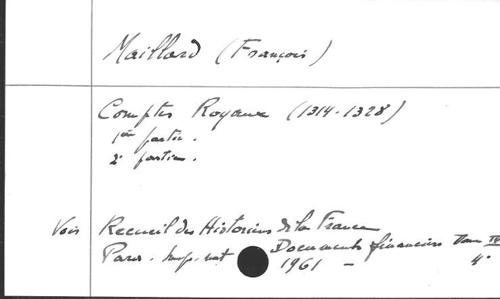 Maillard (François)
Comptes Royaux (1314-1328)
1ère partie.
2e partie.
Voir Recueil des Historiens de la France
Documents financiers Tome IV
Paris. Imp. nat 1961 - 4°